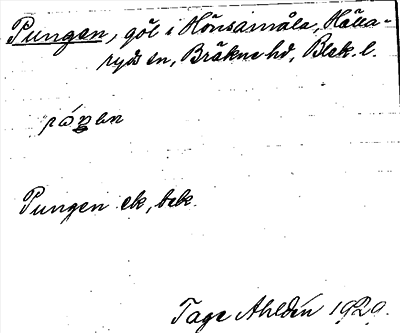 Pungen, göl i Hönsamåla, Hälla-
ryds sn, Bräkne hd, Blek. l.
Pungen ek, bek.
Tage Ahldén 1929.